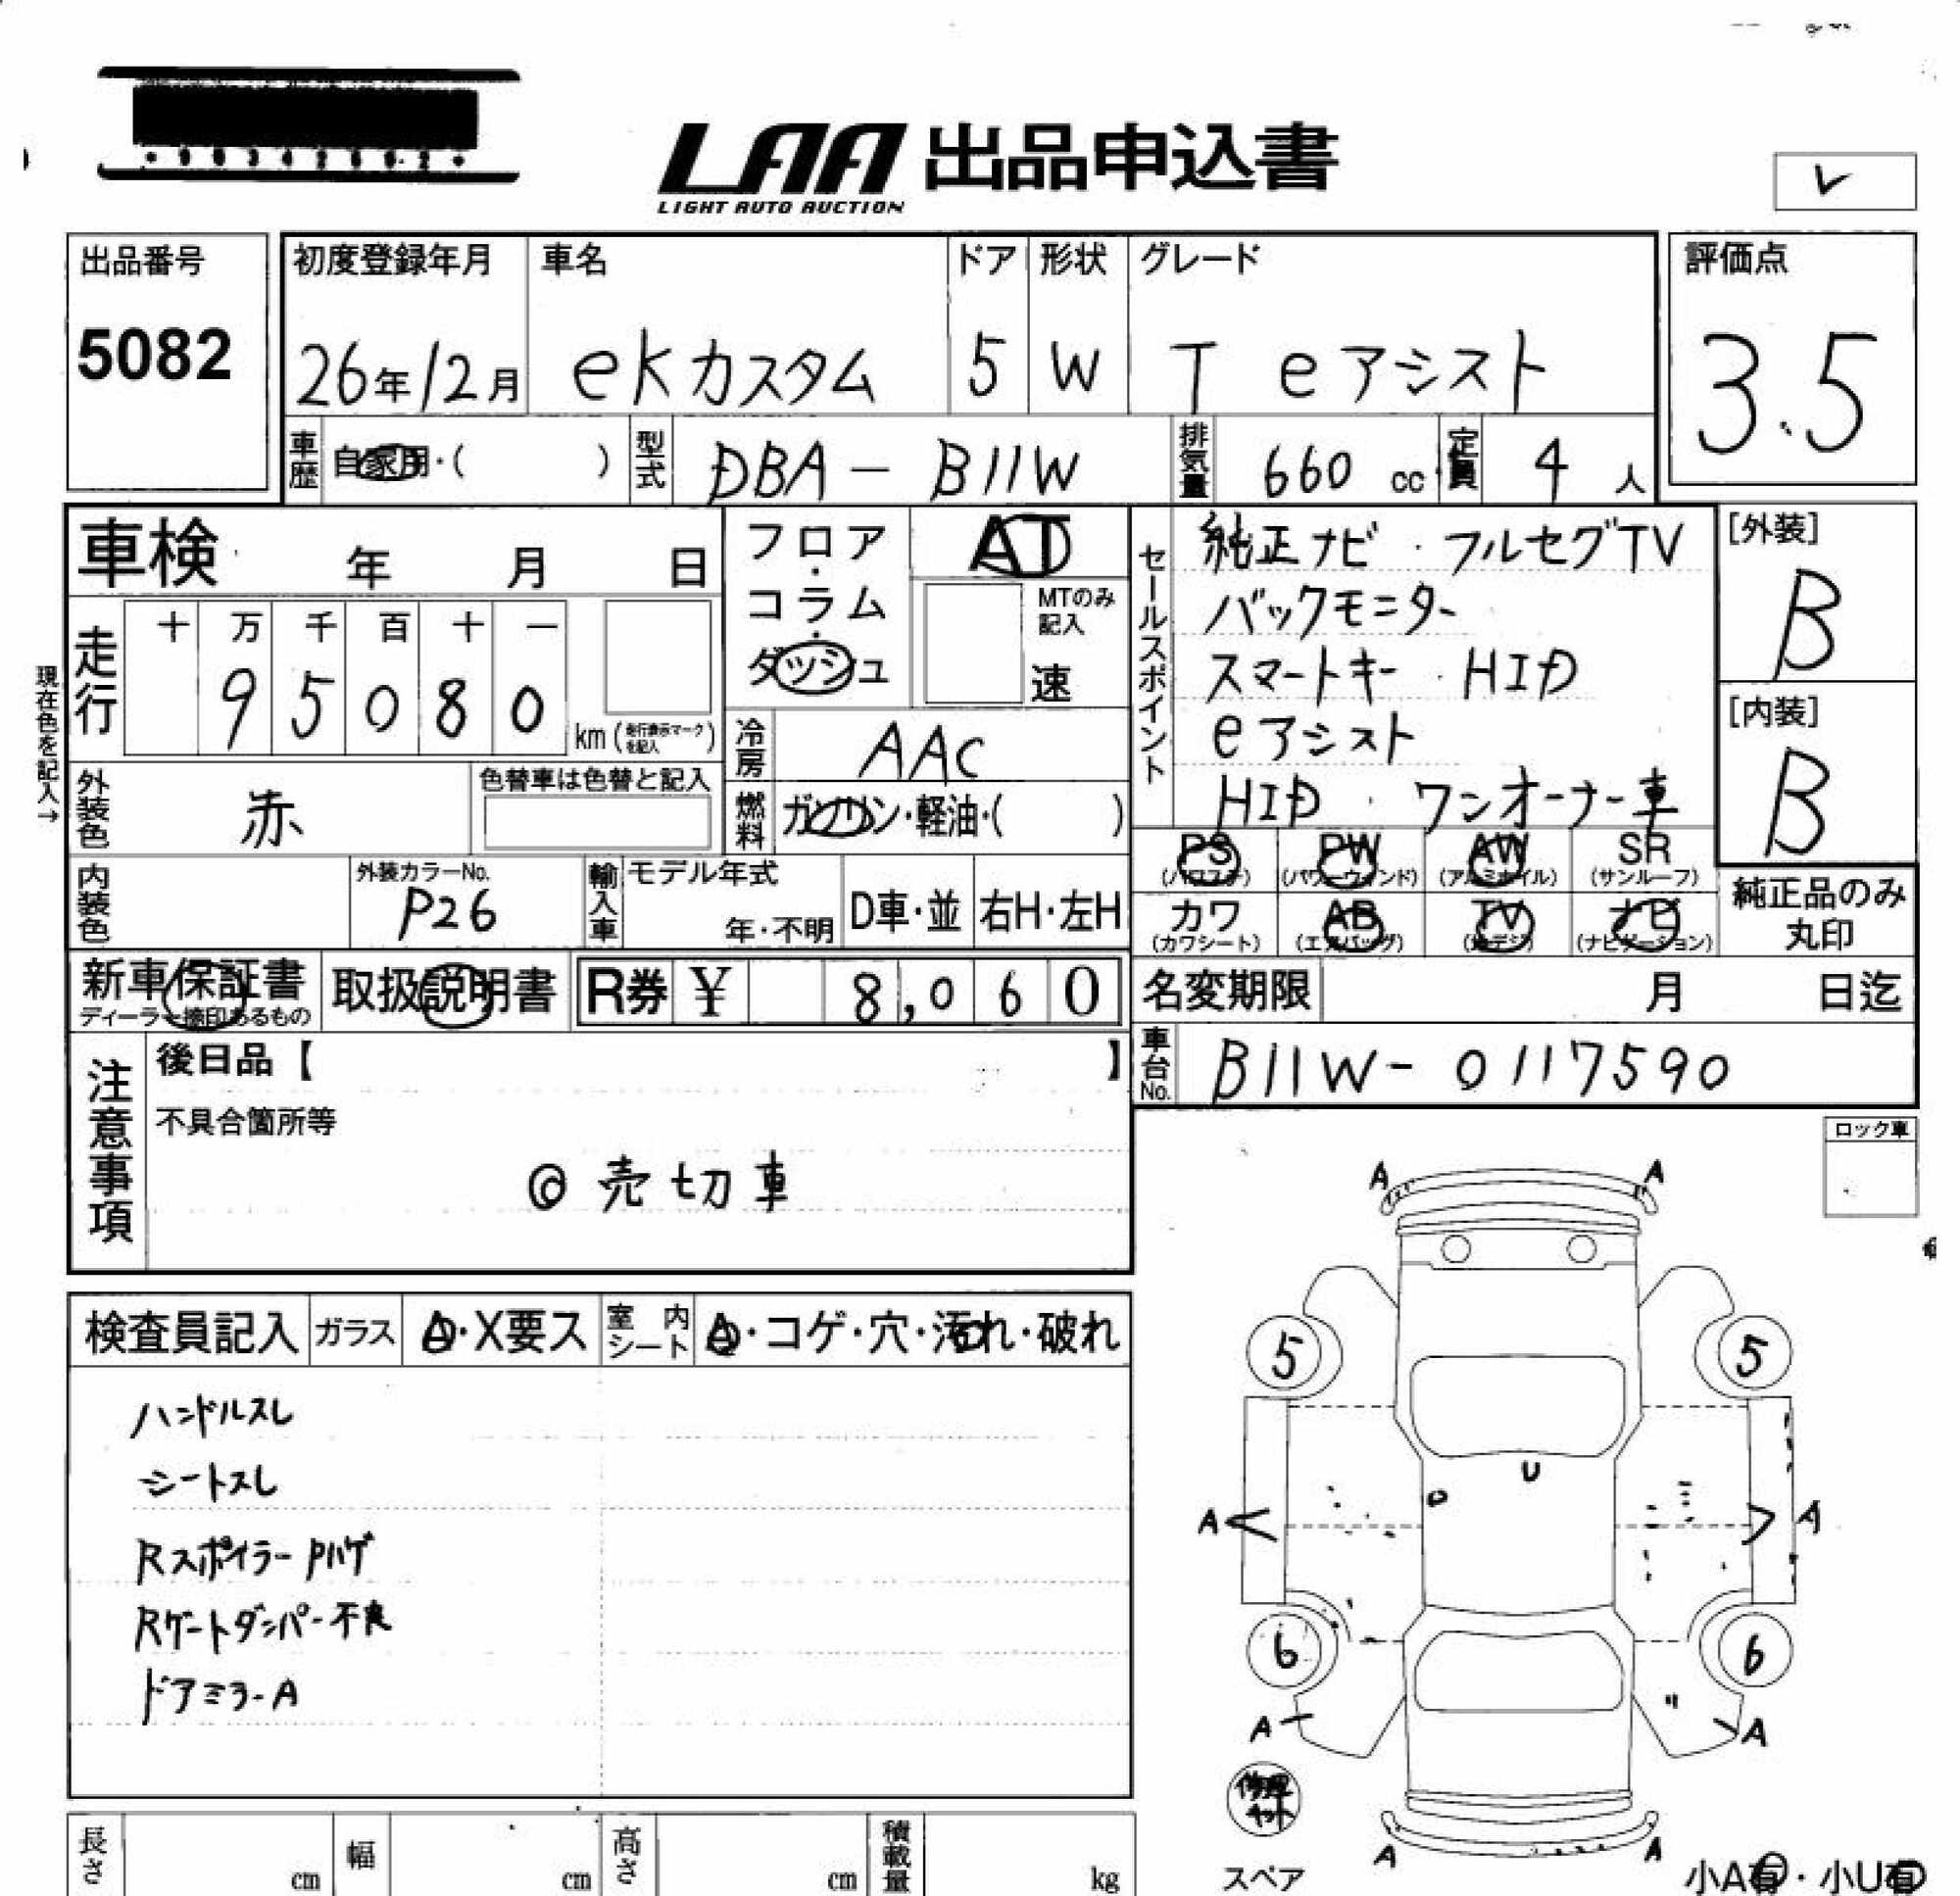 LAA 出品申込書
LIGHT AUTO AUCTION
レ
出品番号
5082
初度登録年月
26年12月
車名
eKカスタム
ドア
5
形状
W
グレード
T eアシスト
評価点
3.5
車歴 自家用・( )
型式 DBA-B11W
排気量 660 cc
定員 4 人
車検 年 月 日
走行
十 万 千 百 十 一
9 5 0 8 0
km(走行表示マークを記入)
現在色を記入→
外装色 赤
色替車は色替と記入
内装色
外装カラーNo.
P26
輸入車
モデル年式
年・不明
D車・並
右H・左H
フロア・コラム・ダッシュ
AT
MTのみ記入
速
冷房 AAC
燃料 ガソリン・軽油・( )
セールスポイント
純正ナビ・フルセグTV
バックモニター
スマートキー・HID
eアシスト
HID・ワンオーナー車
[外装]
B
[内装]
B
PS (パワステ)
PW (パワーウィンド)
AW (アルミホイル)
SR (サンルーフ)
カワ (カワシート)
AB (エアバッグ)
TV (地デジ)
ナビ (ナビゲーション)
純正品のみ丸印
新車保証書
ディーラー捺印あるもの
取扱説明書
R券 ¥ 8,060
名変期限 月 日迄
車台No. B11W-0117590
注意事項
後日品【 】
不具合箇所等
◎売切車
ロック車
検査員記入
ガラス A・X要ス
室内シート A・コゲ・穴・汚れ・破れ
ハンドルスレ
シートスレ
Rスポイラー Pハゲ
Rゲートダンパー不良
ドアミラーA
A A
5 5
U
A A
6 6
A A
修理キット
スペア
A A
小A有・小U有
長さ cm
幅 cm
高さ cm
積載量 kg